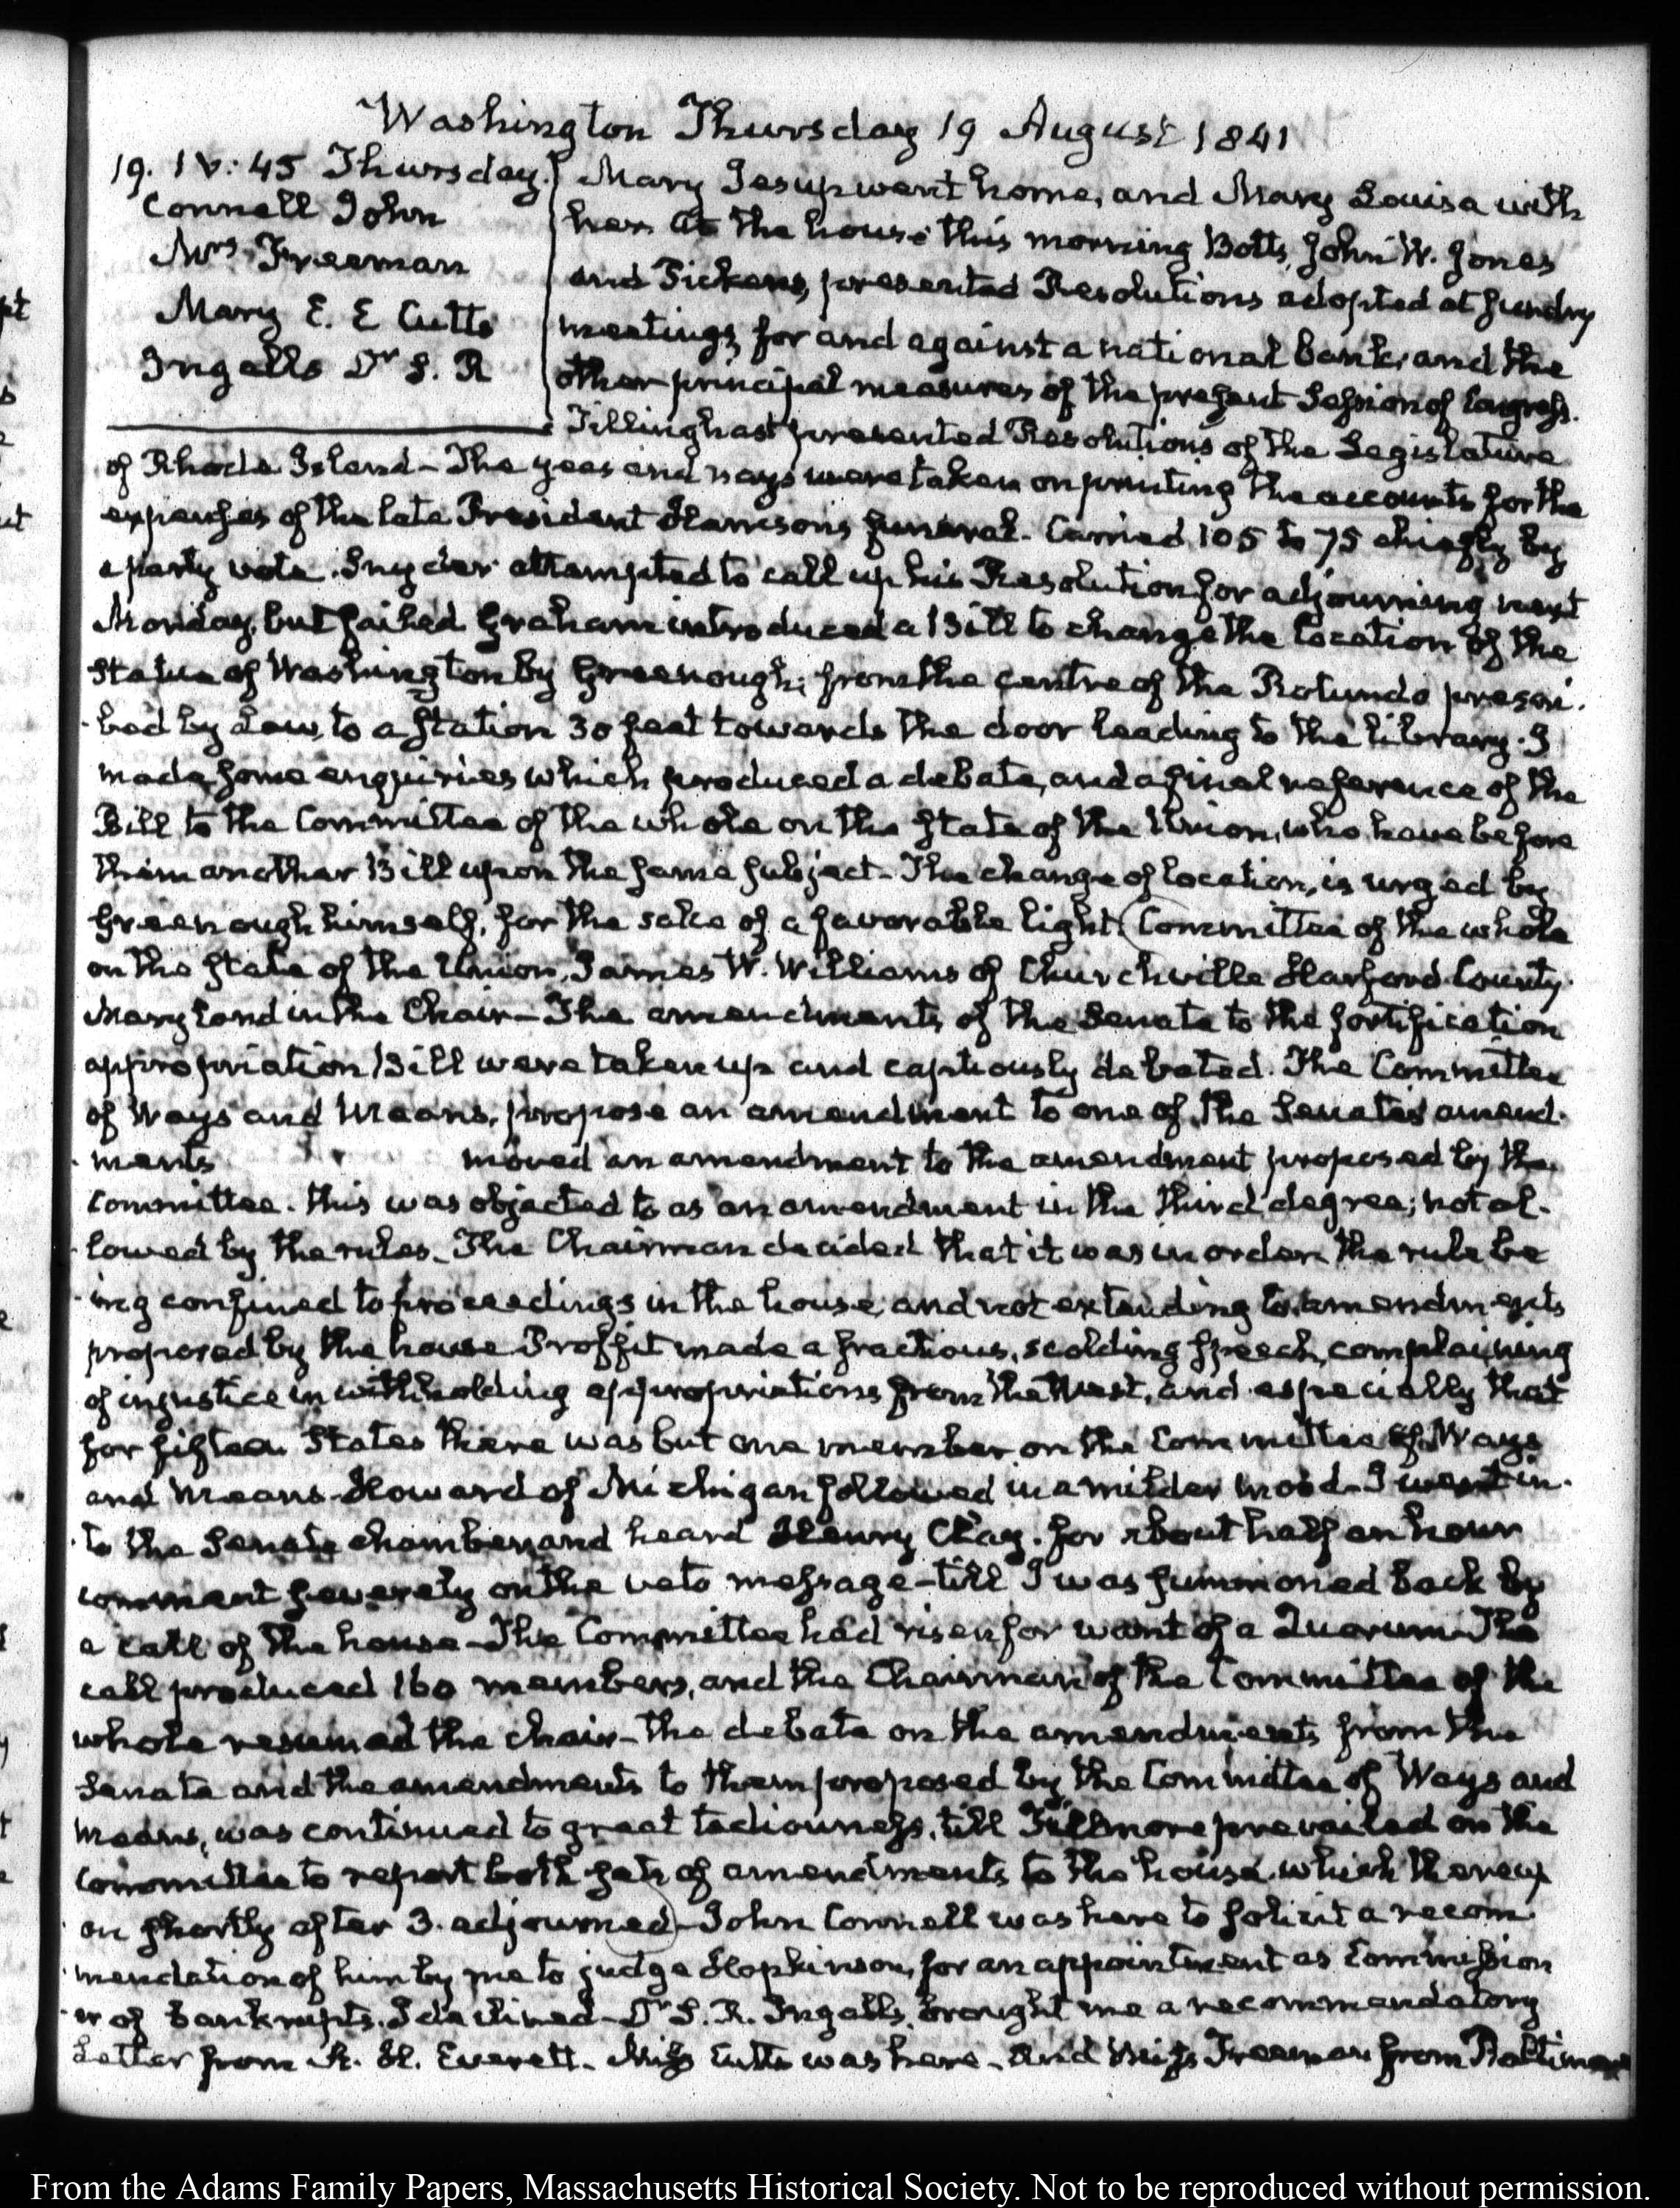 Washington Thursday 19 August 1841
19. IV: 45 Thursday.
Connell John
Mrs Freeman
Mary E. E Cutts
Ingalls Dr S. R
Mary Jesup went home, and Mary Louisa with
her. At the house this morning Botts, John W. Jones
and Pickens, presented Resolutions adopted at sundry
meetings for and against a national bank, and the
other principal measures of the present Session of Congress.
Tillinghast presented Resolutions of the Legislature
of Rhode Island – The yeas and nays were taken on printing the accounts for the
expenses of the late President Harrison's funeral. Carried 105 to 75 chiefly by
a party vote. Snyder attempted to call up his Resolution for adjourning next
Monday, but failed Graham introduced a Bill to change the location of the
Statue of Washington by Greenough; from the centre of the Rotunda prescri-
-bed by Law, to a station 30 feet towards the door leading to the library. I
made some enquiries which produced a debate, and a final reference of the
Bill to the Committee of the whole on the state of the Union, who have before
them another Bill upon the same subject – The change of location, is urged by
Greenough himself, for the sake of a favorable light. Committee of the whole
on the state of the Union, James W. Williams of Churchville Harford County
Maryland in the Chair – The amendments of the Senate to the fortification
appropriation Bill were taken up and captiously debated. The Committee
of Ways and Means, propose an amendment to one of the Senates amend-
-ments moved an amendment to the amendment proposed by the
Committee. this was objected to as an amendment in the third degree; not al-
-lowed by the rules. The Chairman decided that it was in order. the rule be
-ing confined to proceedings in the house, and not extending to amendments
proposed by the house Proffit made a fractious, scolding speech, complaining
of injustice in withholding appropriations from the West, and especially that
for fifteen States there was but one member on the Committee of Ways
and Means – Howard of Michigan followed in a milder mood – I went in-
-to the Senate chamber and heard Henry Clay. for about half an hour
comment severely on the veto message – till I was summoned back by
a call of the house – The Committee had risen for want of a Quorum – The
call produced 160 members, and the Chairman of the Committee of the
whole resumed the chair – the debate on the amendments from the
Senate and the amendments to them proposed by the Committee of Ways and
Means, was continued to great tediousness, till Fillmore prevailed on the
Committee to report both sets of amendments to the house. which thereup
on shortly after 3. adjourned – John Connell was here to solicit a recom-
-mendation of him by me to judge Hopkinson, for an appointment as Commission
-er of bankrupts. I declined – Dr S. R. Ingalls, brought me a recommendatory
Letter from A. H. Everett – Miss Cutts was here – and Miss Freeman from Baltimore
From the Adams Family Papers, Massachusetts Historical Society. Not to be reproduced without permission.